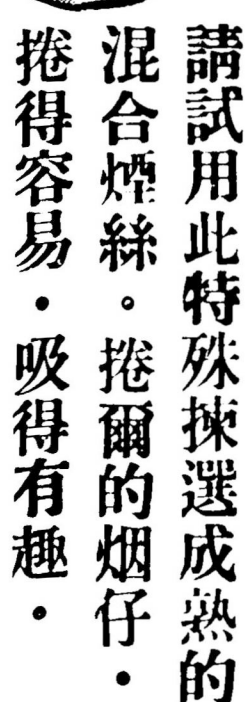 請試用此特殊揀選成熟的
混合煙絲。捲爾的烟仔・
捲得容易・吸得有趣・